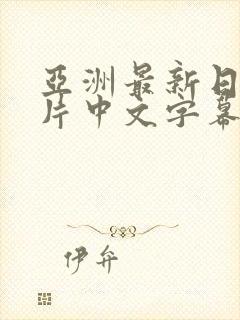 亞洲最新日
片中文字幕
伊弁